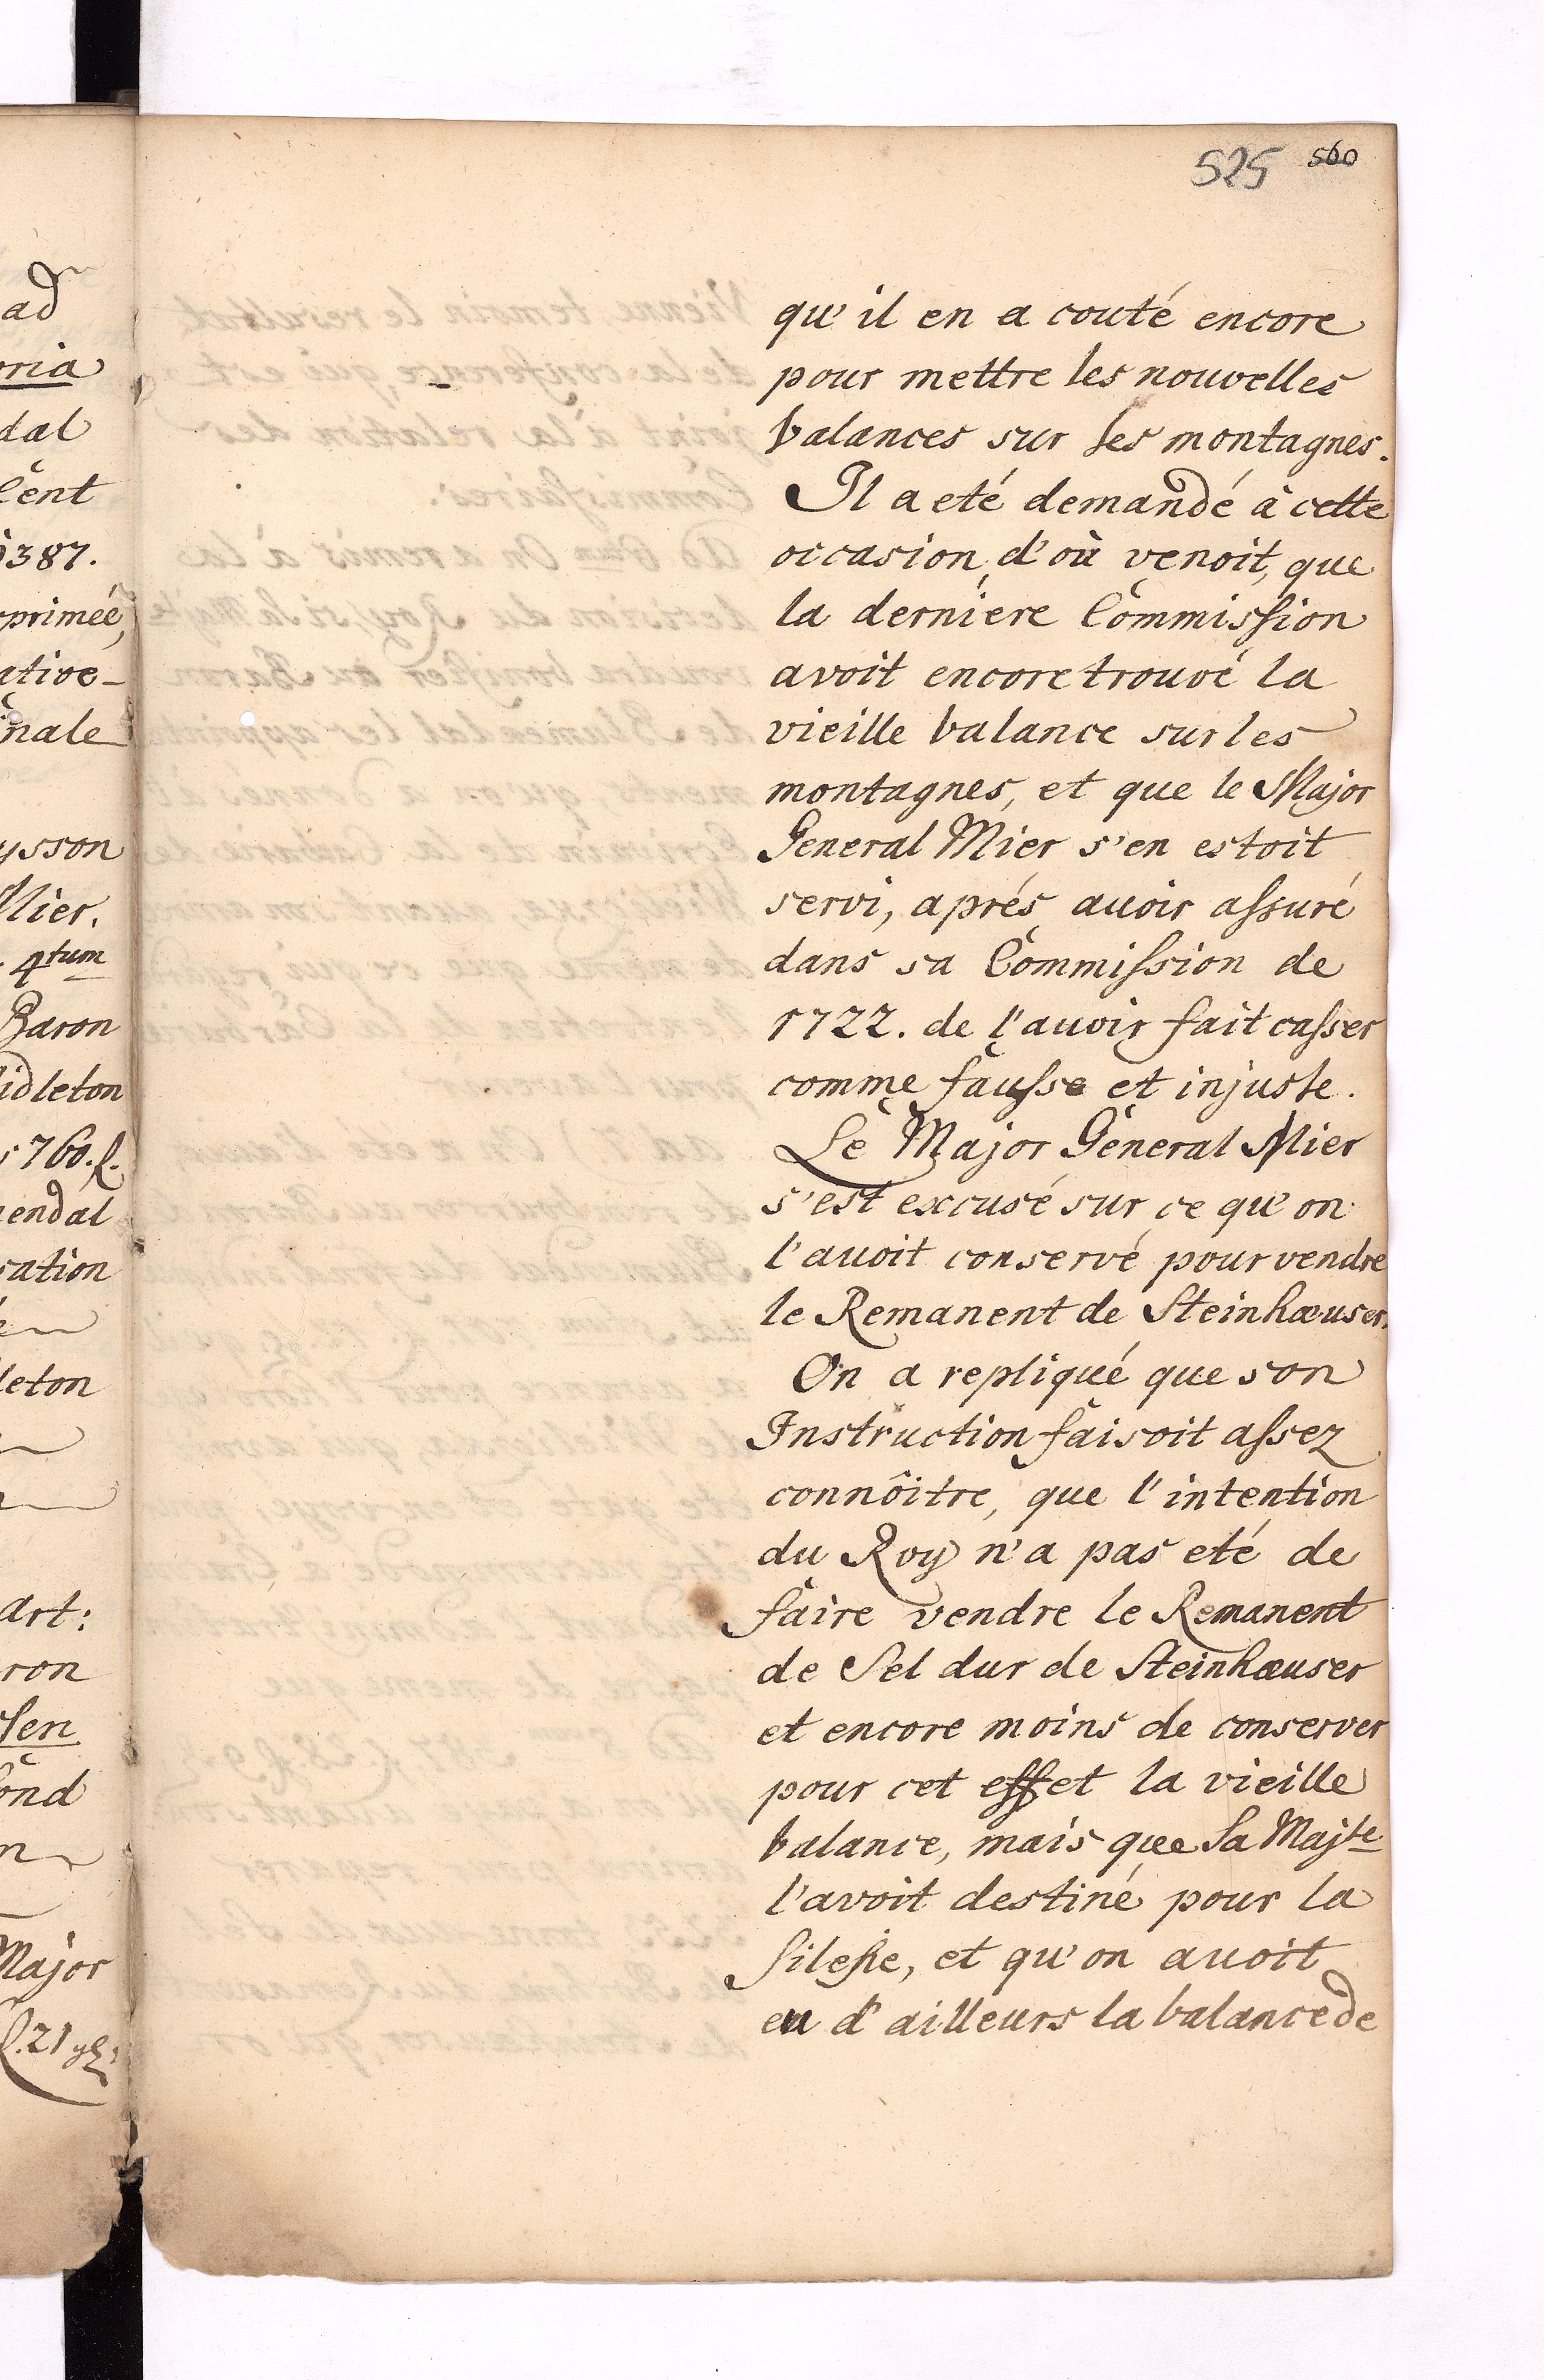 525 560
ad
oria
dal
Cent
1387.
primée,
ative-
nale
ysson
Mier.
4tum
Baron
idleton
5760.f.
endal
sation
leton
art:
ron
sen
ond
Major
f.21
qu'il en a couté encore
pour mettre les nouvelles
balances sur les montagnes.
Il a eté demandé à cette
occasion, d'où venoit, que
la derniere Commission
avoit encore trouvé la
vieille balance sur les
montagnes, et que le Major
General Mier s'en estoit
servi, aprés avoir assuré
dans sa Commission de
1722. de l'avoir fait casser
comme fausse et injuste.
Le Major General Mier
s'est excusé sur ce qu'on
l'avoit conservé pour vendre
le Remanent de Steinhæuser.
On a repliqué que son
Instruction faisoit assez
connôitre, que l'intention
du Roy n'a pas eté de
faire vendre le Remanent
de Sel dur de Steinhæuser
et encore moins de conserver
pour cet effet la vieille
balance, mais que Sa Majte
l'avoit destiné pour la
Silesie, et qu'on avoit
eu d'ailleurs la balance de